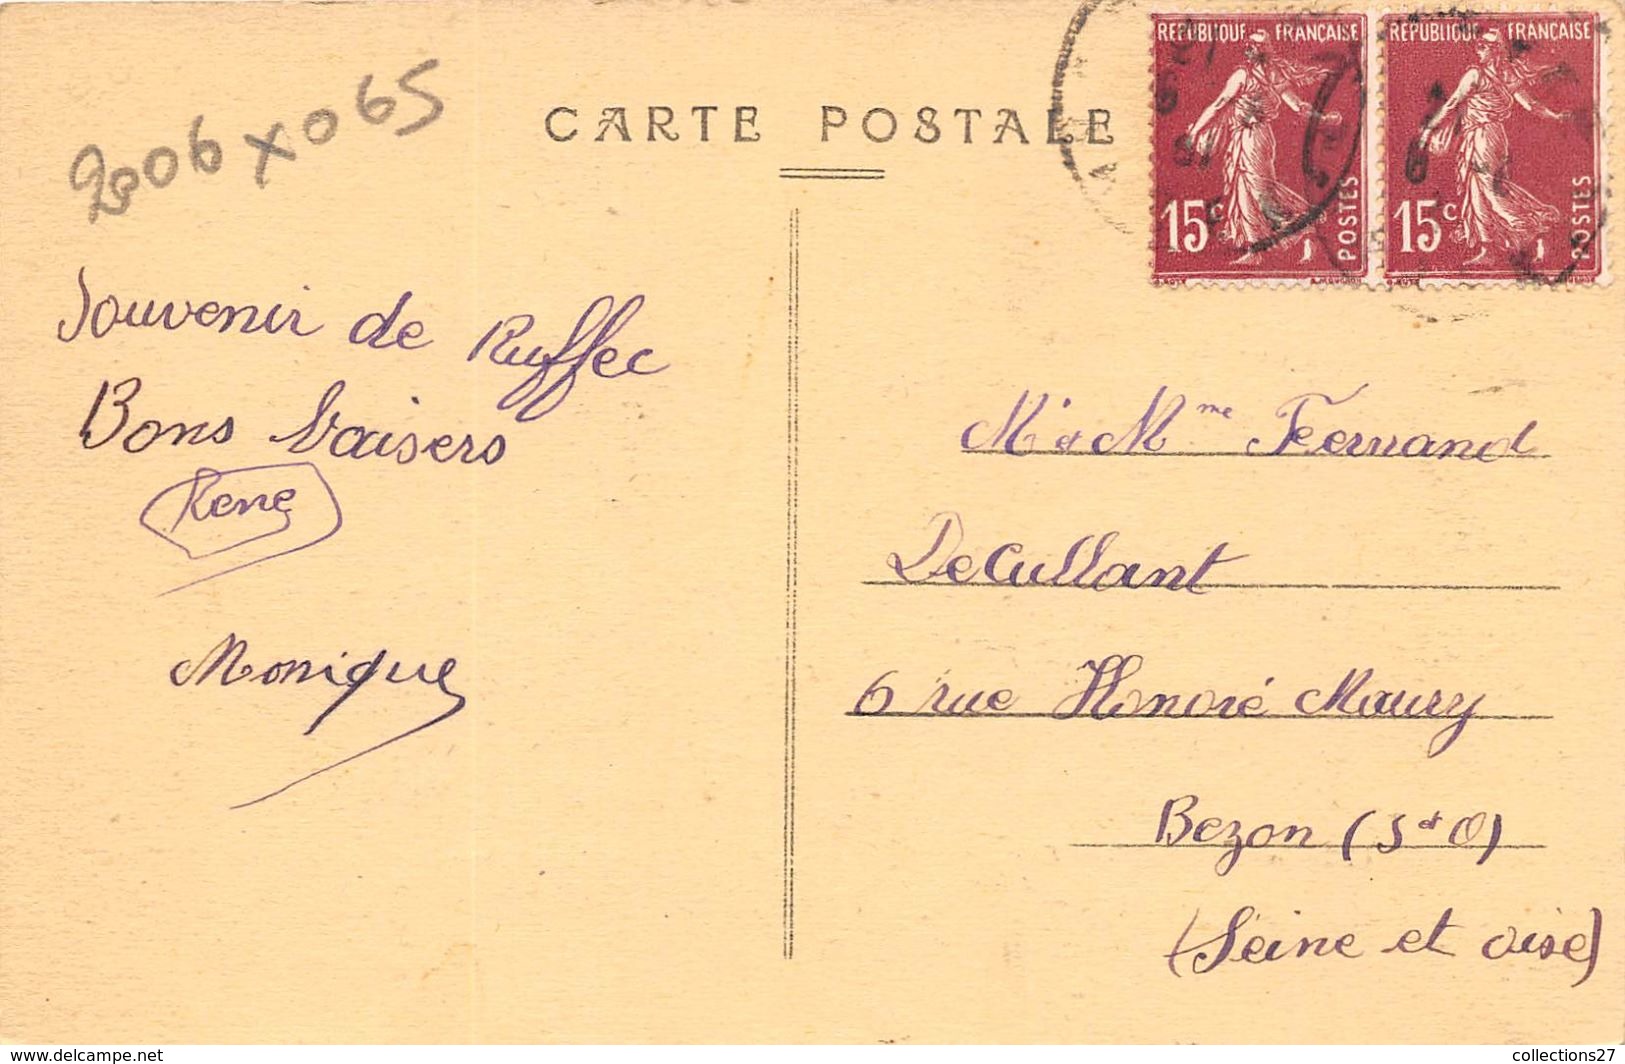 2006 x 065
CARTE POSTALE
REPUBLIQUE FRANÇAISE
15c
POSTES
REPUBLIQUE FRANÇAISE
15c
POSTES
Souvenir de Ruffec
Bons baisers
René
Monique
Mr et Mme Fernand
Decullant
6 rue Honoré Maury
Bezon (S et O)
(Seine et oise)
www.delcampe.net
collections27